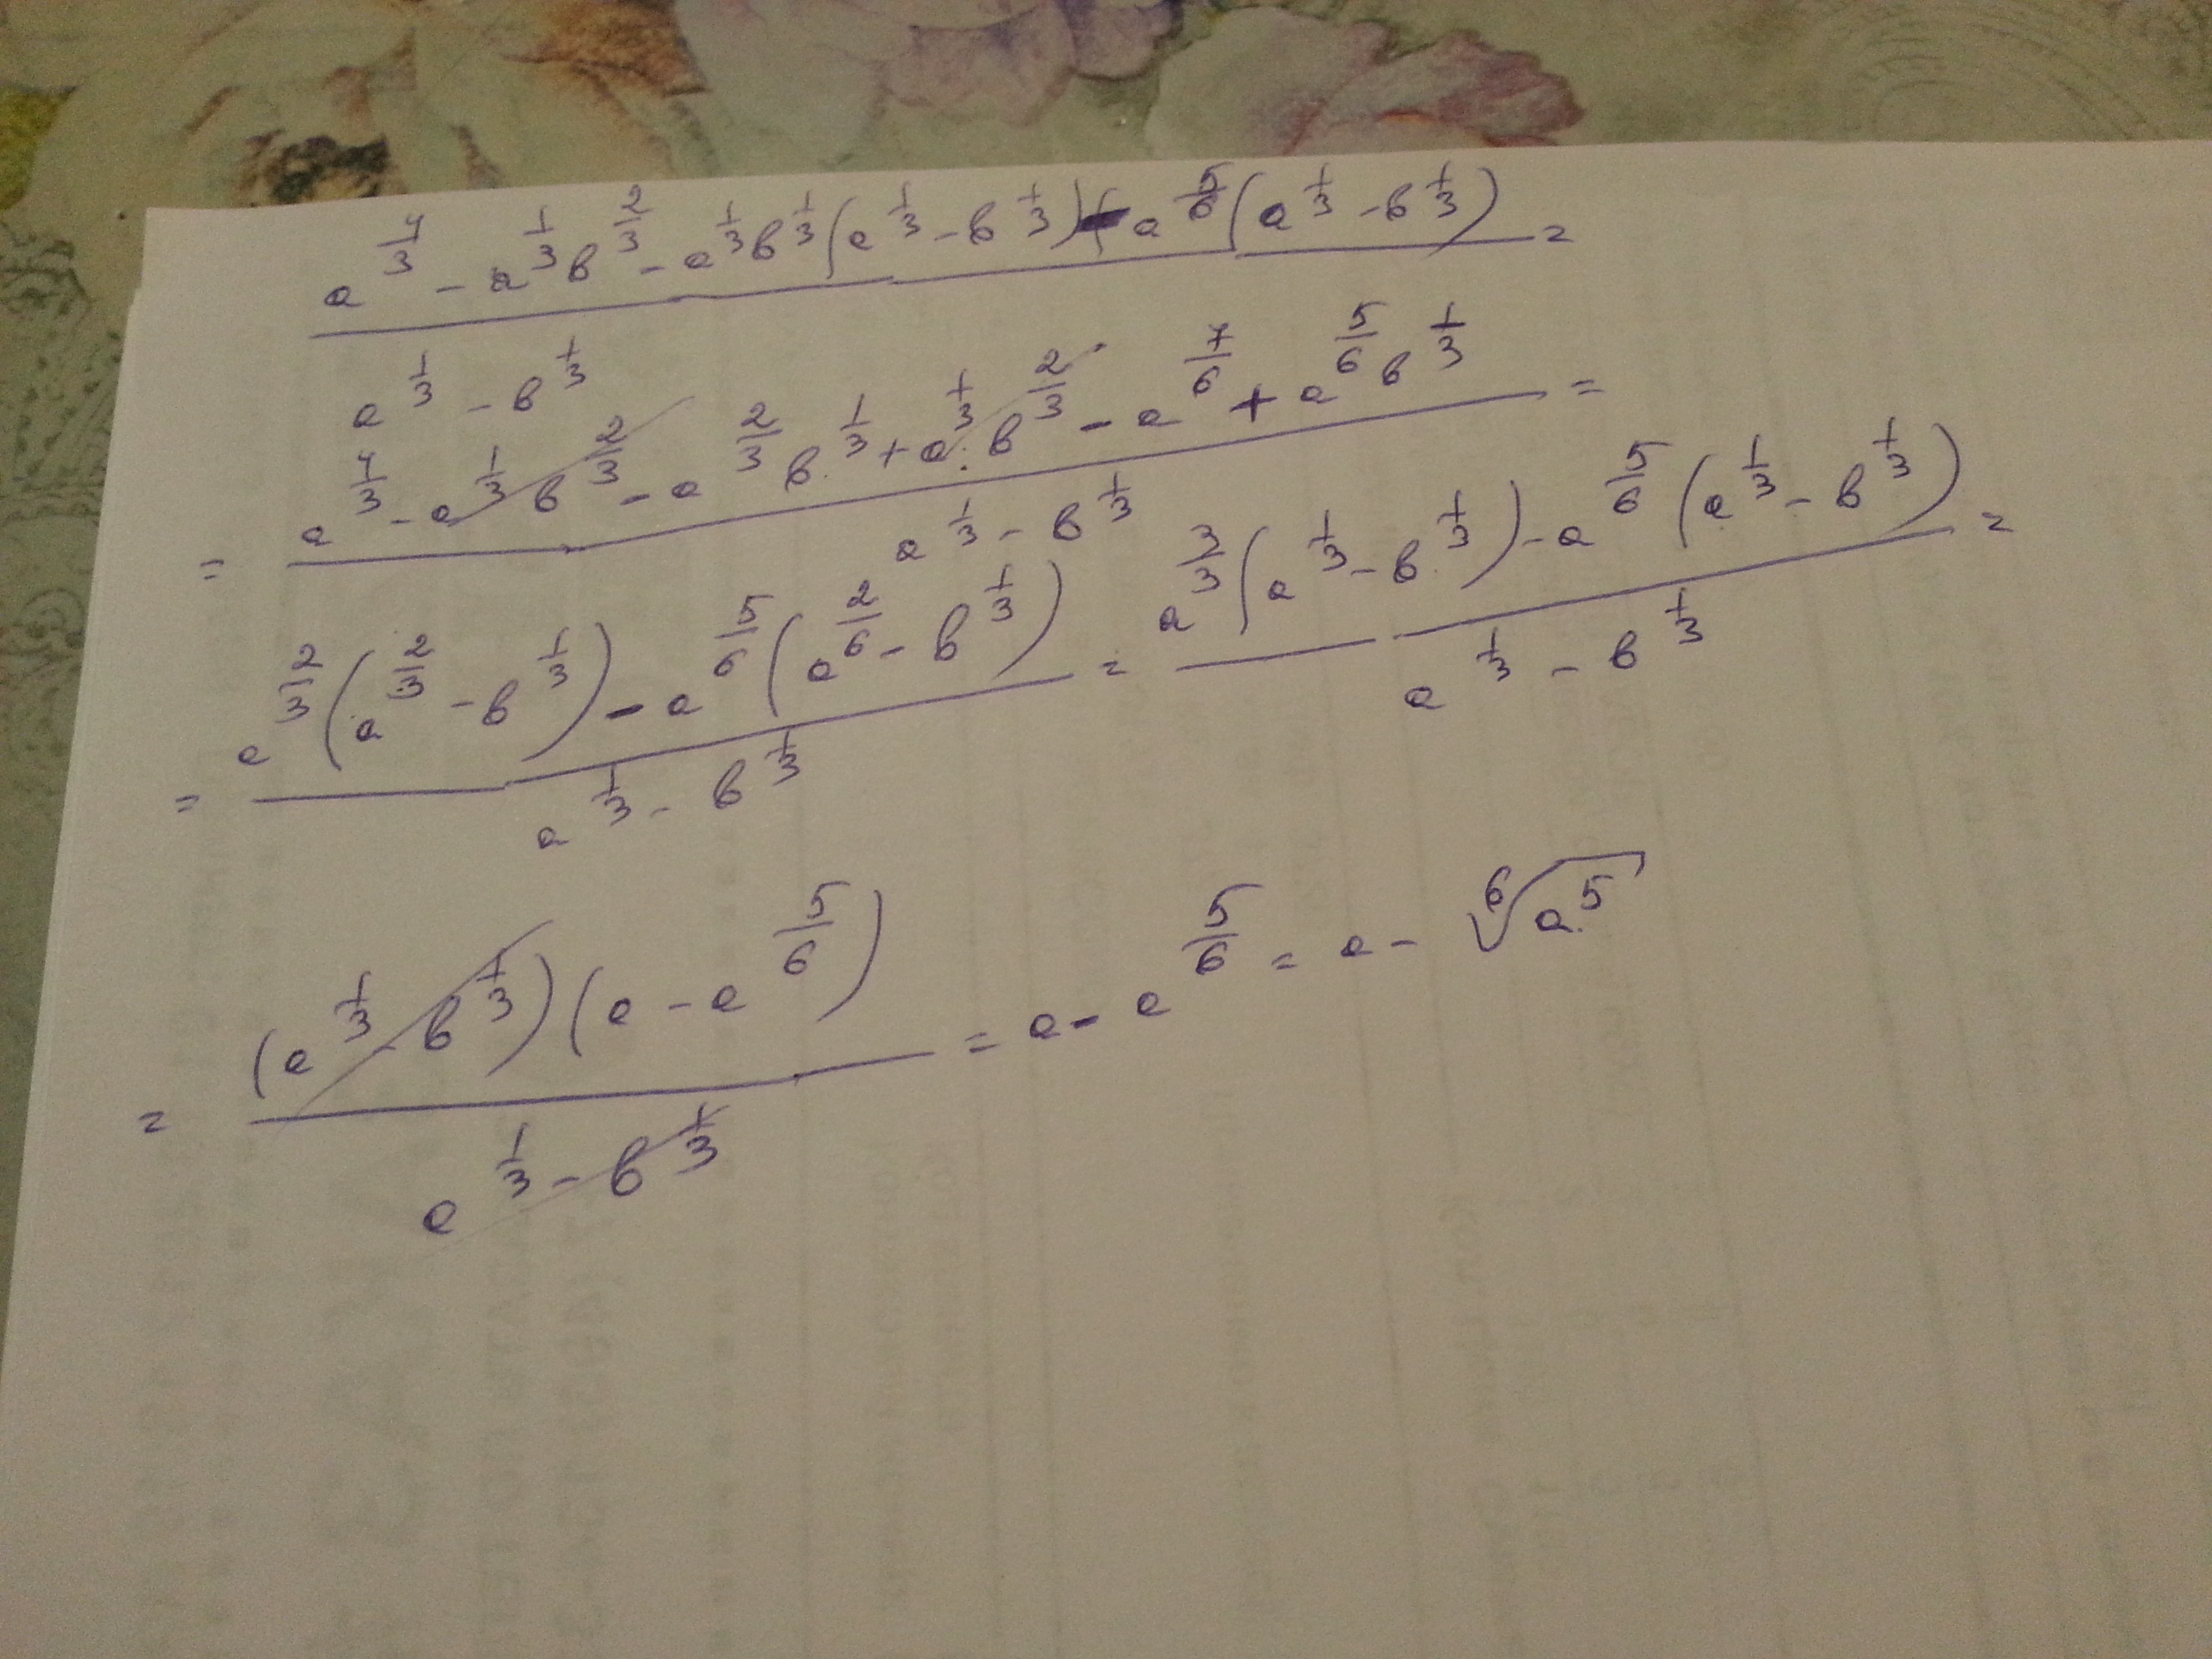 (a^(4/3) - a^(1/3) в^(2/3) - a^(1/3) в^(1/3) (a^(1/3) - в^(1/3)) - a^(5/6) (a^(1/3) - в^(1/3))) / (a^(1/3) - в^(1/3)) =
= (a^(4/3) - a^(1/3) в^(2/3) - a^(2/3) в^(1/3) + a^(1/3) · в^(2/3) - a^(7/6) + a^(5/6) в^(1/3)) / (a^(1/3) - в^(1/3)) =
= (a^(2/3) (a^(2/3) - в^(1/3)) - a^(5/6) (a^(2/6) - в^(1/3))) / (a^(1/3) - в^(1/3)) = (a^(3/3) (a^(1/3) - в^(1/3)) - a^(5/6) (a^(1/3) - в^(1/3))) / (a^(1/3) - в^(1/3)) =
= ((a^(1/3) - в^(1/3)) (a - a^(5/6))) / (a^(1/3) - в^(1/3)) = a - a^(5/6) = a - ⁶√(a^5)